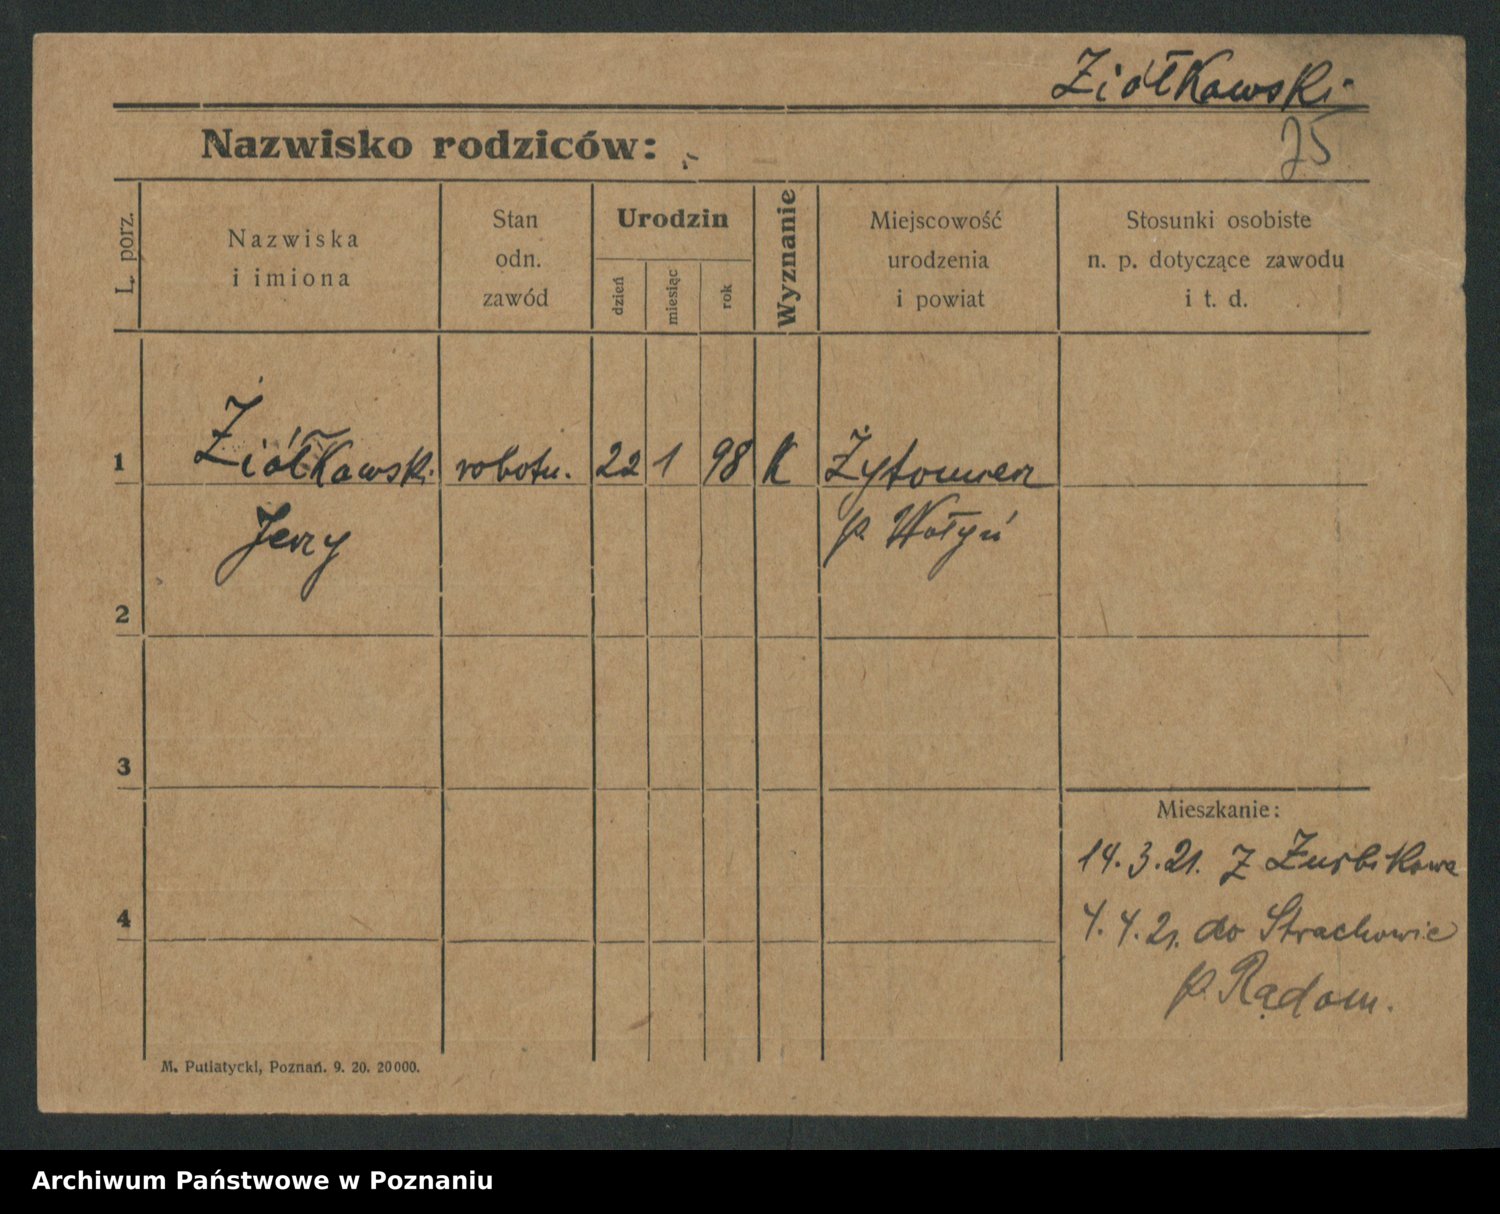 Ziółkowski
75
Nazwisko rodziców:
L. porz.
Nazwiska
i imiona
Stan
odn.
zawód
Urodzin
dzień
miesiąc
rok
Wyznanie
Miejscowość
urodzenia
i powiat
Stosunki osobiste
n. p. dotyczące zawodu
i t. d.
1 Ziółkowski robotn. 22 1 98 K Żytomierz
Jerzy p. Wołyń
2
3
Mieszkanie:
14.3.21. z Żurbikowa
4
4.4.21. do Strachowic
p. Rądom.
M. Putiatycki, Poznań. 9. 20. 20000.
Archiwum Państwowe w Poznaniu